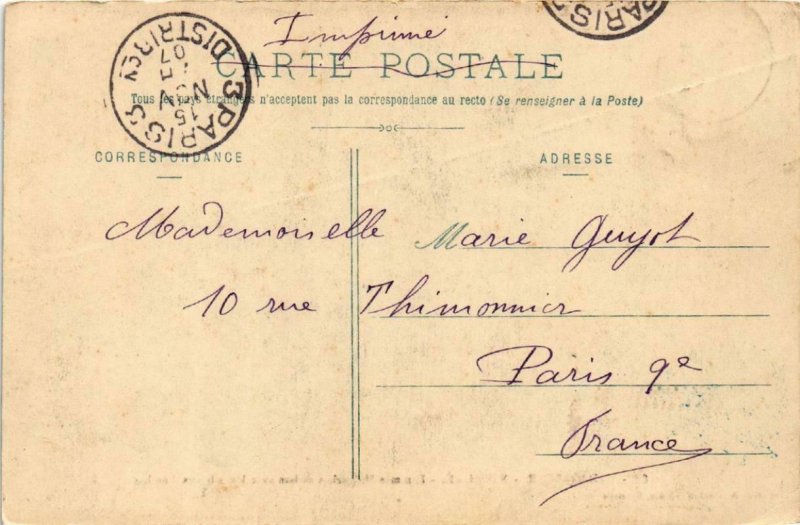 Imprimé
CARTE POSTALE
Tous les pays étrangers n'acceptent pas la correspondance au recto (Se renseigner à la Poste)
PARIS 3
DISTRIBON
15
07
PARIS
CORRESPONDANCE
ADRESSE
Mademoiselle Marie Guyot
10 rue Thimonnier
Paris 9e
France